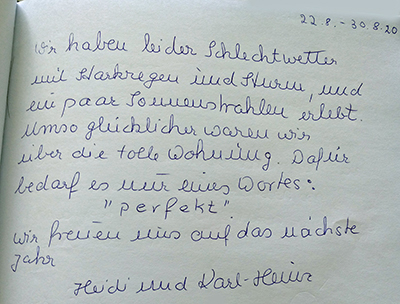 22.8. - 30.8.20
wir haben leider Schlechtwetter
mit Starkregen und Sturm, und
ein paar Sonnenstrahlen erlebt.
Umso glücklicher waren wir
über die tolle Wohnung. Dafür
bedarf es nur eines Wortes:
"perfekt"
wir freuen uns auf das nächste
Jahr
Heidi und Karl-Heinz